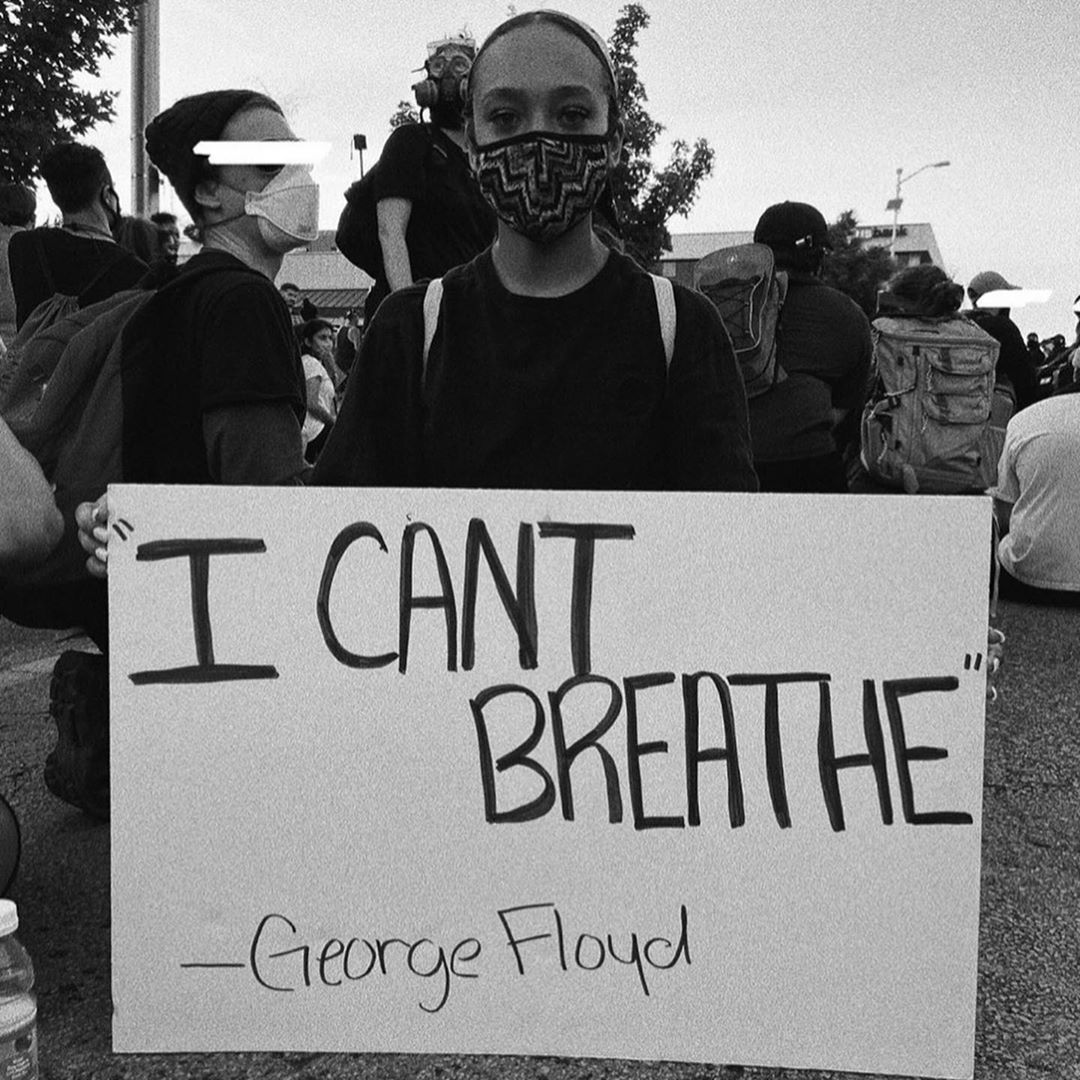 "I CANT
BREATHE"
—George Floyd